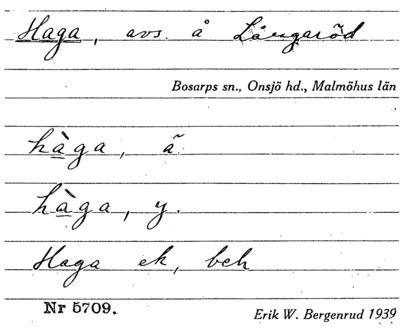 Haga, avs. å Långaröd
Bosarps sn., Onsjö hd., Malmöhus län
hàga, ã.
hàga, y.
Haga ek, beh
Nr 5709.
Erik W. Bergenrud 1939